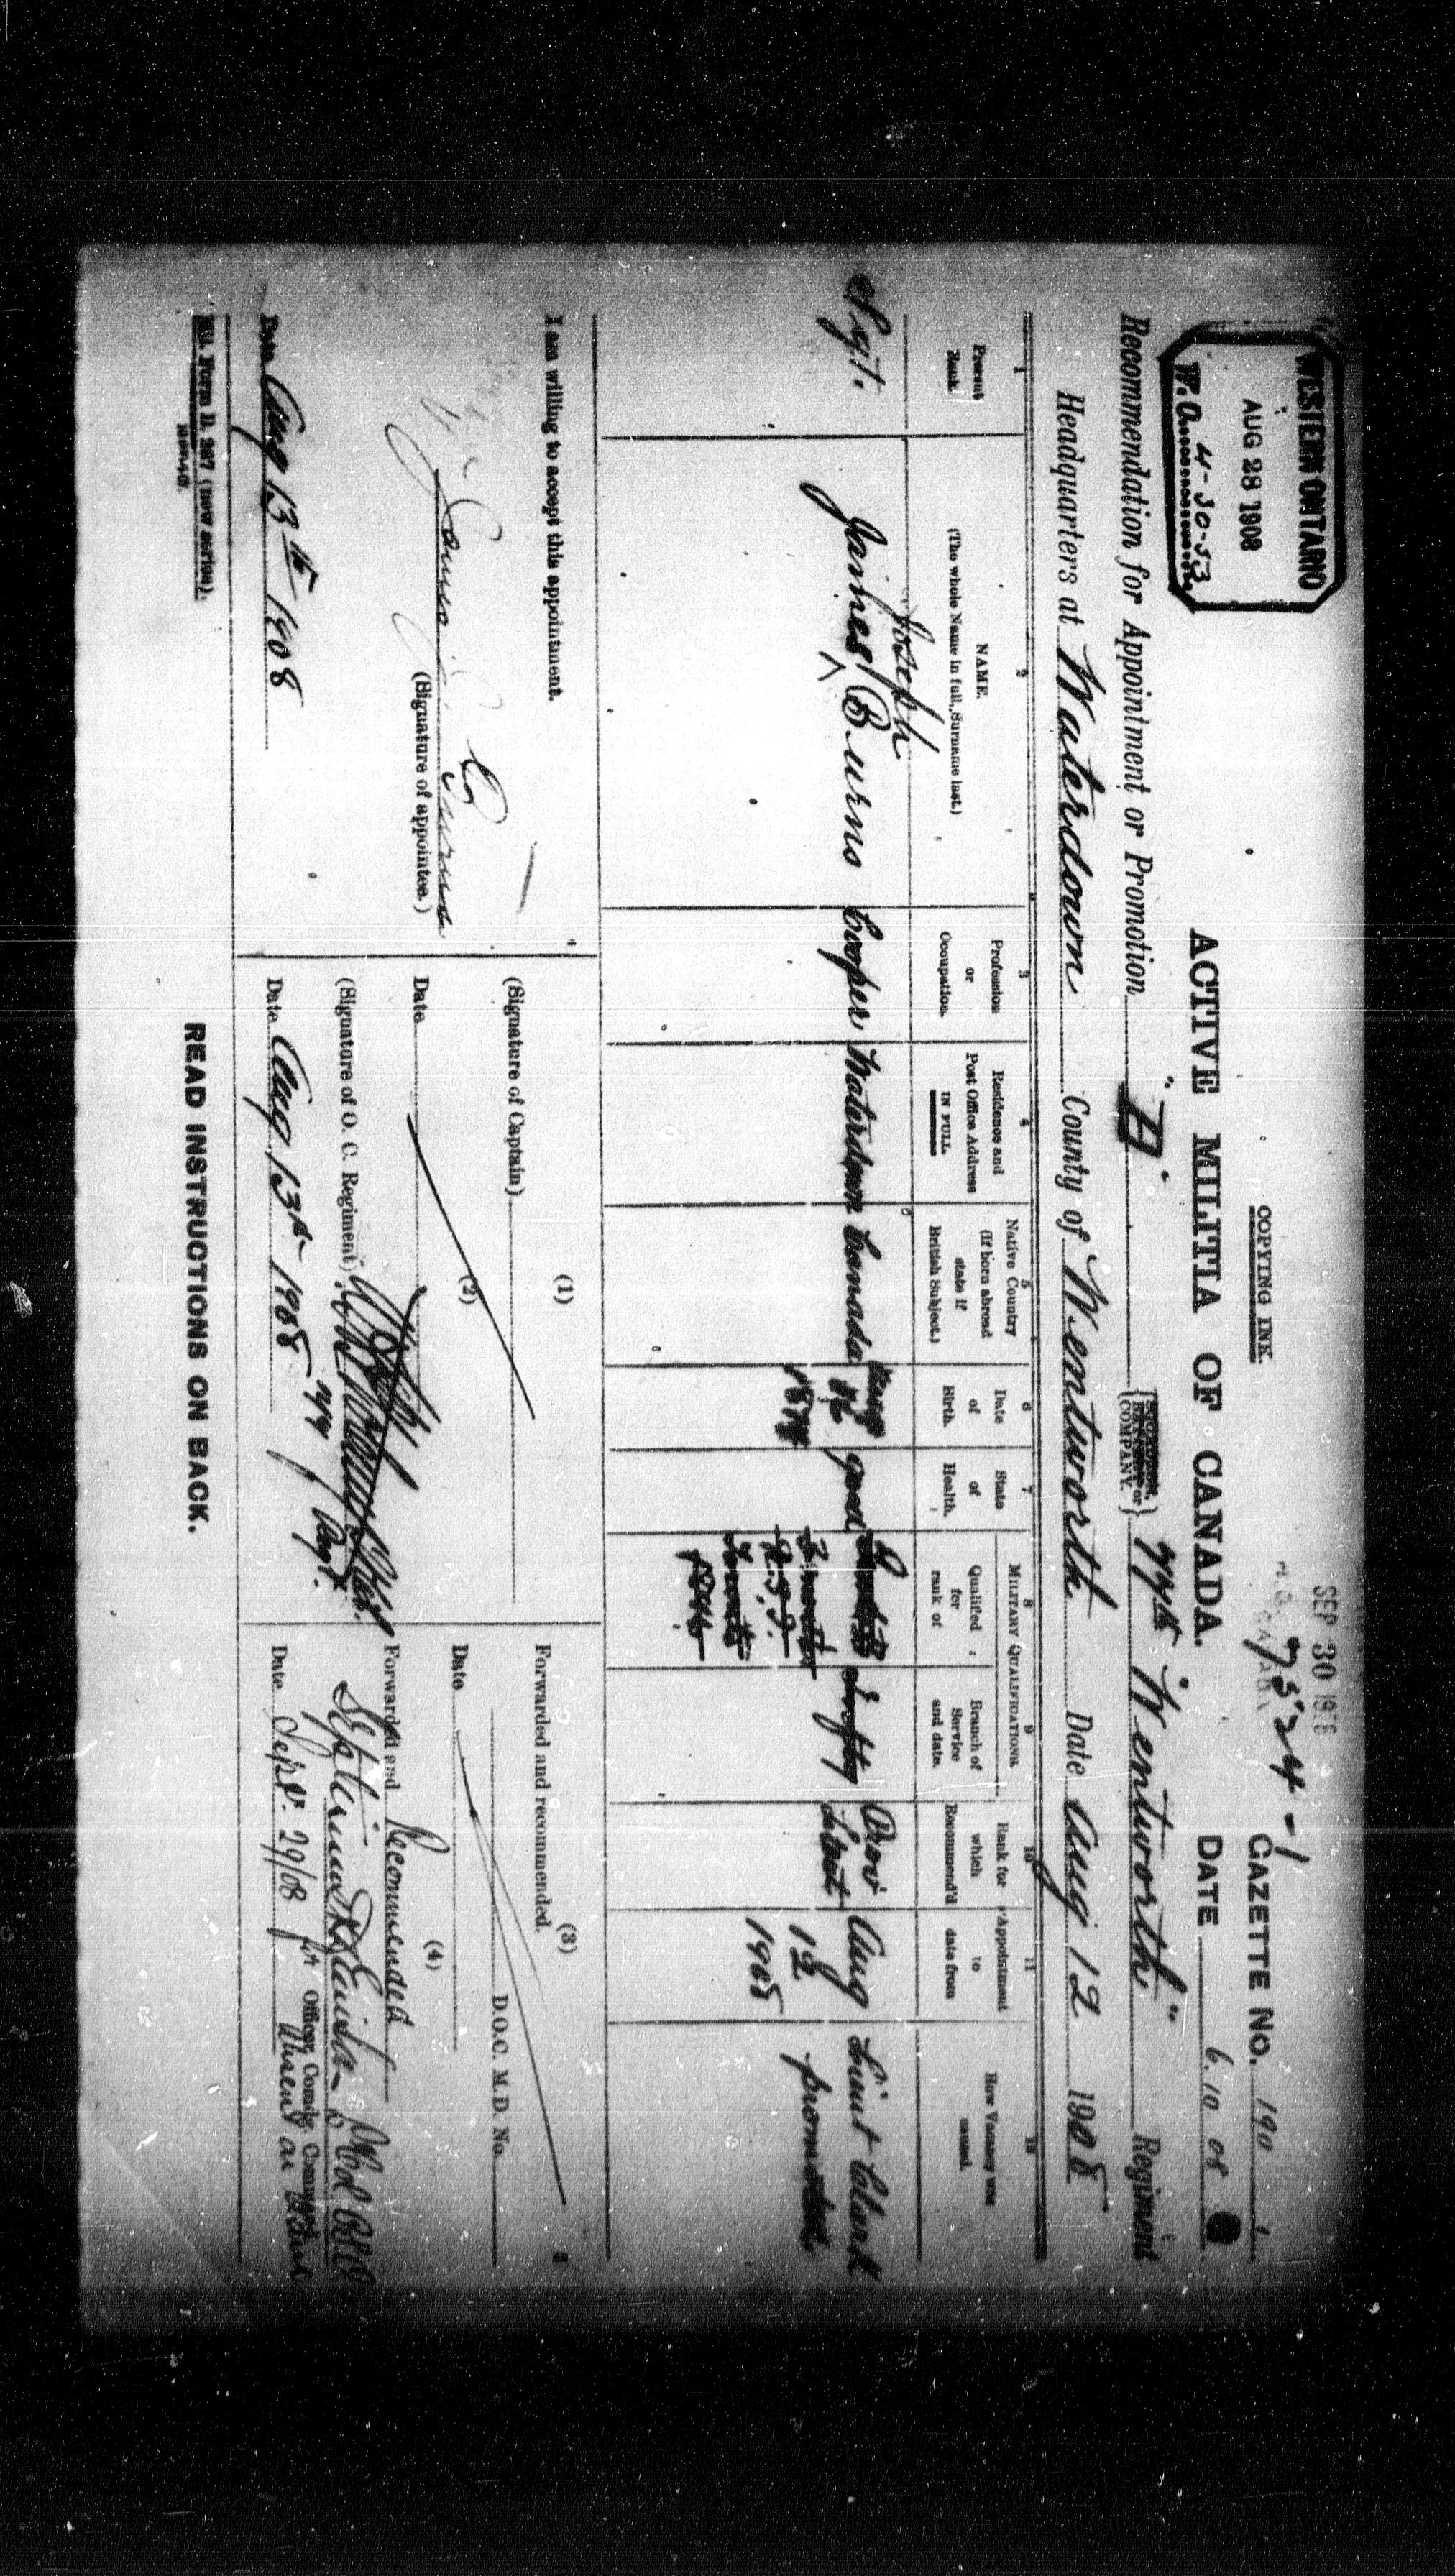 WESTERN ONTARIO
AUG 28 1908
W.O. 4-30-53
COPYING INK.
SEP 30 1908
7524-1
GAZETTE NO. 190
DATE 6.10.08
ACTIVE MILITIA OF CANADA.
Recommendation for Appointment or Promotion
COMPANY.
77th "Wentworth" Regiment
Headquarters at Waterdown County of Wentworth Date Aug 12 1908
1
Present Rank.
2
NAME.
(The whole Name in full, Surname last.)
3
Profession or Occupation.
4
Residence and Post Office Address IN FULL.
5
Native Country (If born abroad state if British Subject.)
6
Date of Birth.
7
State of Health.
MILITARY QUALIFICATIONS.
8
Qualified for rank of
9
Branch of Service and date.
10
Rank for which Recommend'd
11
Appointment to date from
12
How Vacancy was caused.
Sgt.
Joseph
James Burns
Cooper
Waterdown
Canada
good
Prov
Lieut
Aug
12
1908
Lieut Clark
promoted
I am willing to accept this appointment.
James J. Burns
(Signature of appointee.)
Date Aug 13th 1908
Mil. Form B. 267 (new series).
(1)
(Signature of Captain)
Date
(2)
(Signature of O. C. Regiment)
Date Aug 13th 1908
77 Regt.
(3)
Forwarded and recommended.
D.O.C. M.D. No.
Date
(4)
Forwarded and Recommended
Officer Comdg. Command
Date Sept. 29/08 for absent on leave
READ INSTRUCTIONS ON BACK.